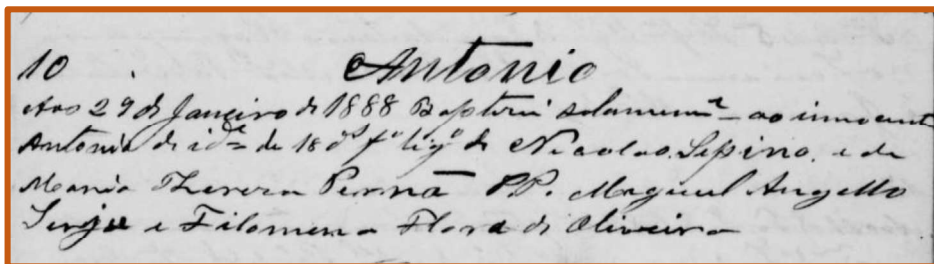 10 Antonio
Aos 29 de Janeiro de 1888 Baptisei solemnemte ao innocente
Antonio de ide de 18 ds fo legº de Nicolao e de
Maria Thereza PP. Miguel Angello
e Filomena Flora de Oliveira